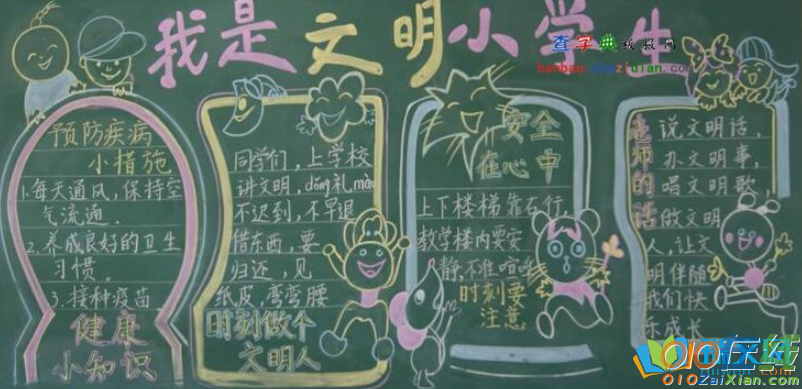 我是文明小学生
查字典板报网
banbao.chazidian.com
预防疾病
小措施
1.每天通风,保持空
气流通.
2.养成良好的卫生
习惯。
3.接种疫苗
健康
小知识
同学们,上学校
讲文明,dǒng礼mào
不迟到,不早退
借东西,要
归还,见
纸皮,弯弯腰
时刻做个
文明人
安全
在心中
上下楼梯靠右行,
教学楼内要安
静,不准喧哗
时刻要
注意
老师的话
说文明话,
办文明事,
唱文明歌,
做文明
人,让文
明伴随
我们快
乐成长
010在线
010zaixian.com